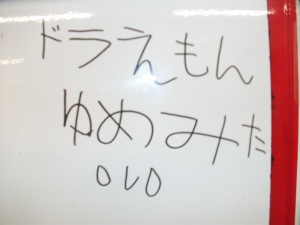 ドラえもん
ゆめみた
OVO